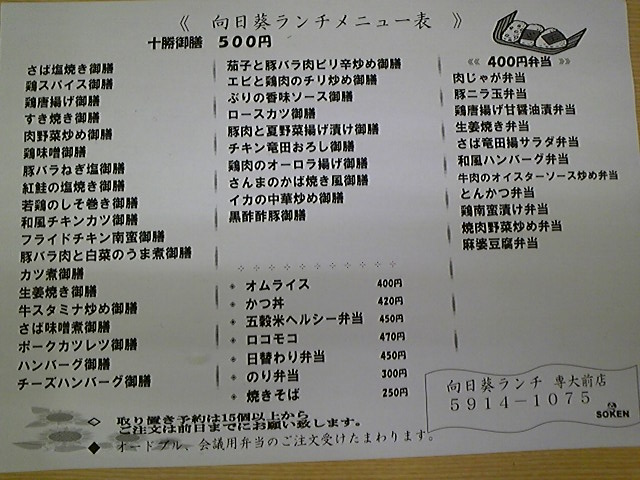 《 向日葵ランチメニュー表 》
十勝御膳 500円
さば塩焼き御膳
鶏スパイス御膳
鶏唐揚げ御膳
すき焼き御膳
肉野菜炒め御膳
鶏味噌御膳
豚バラねぎ塩御膳
紅鮭の塩焼き御膳
若鶏のしそ巻き御膳
和風チキンカツ御膳
フライドチキン南蛮御膳
豚バラ肉と白菜のうま煮御膳
カツ煮御膳
生姜焼き御膳
牛スタミナ炒め御膳
さば味噌煮御膳
ポークカツレツ御膳
ハンバーグ御膳
チーズハンバーグ御膳
茄子と豚バラ肉ピリ辛炒め御膳
エビと鶏肉のチリ炒め御膳
ぶりの香味ソース御膳
ロースカツ御膳
豚肉と夏野菜揚げ漬け御膳
チキン竜田おろし御膳
鶏肉のオーロラ揚げ御膳
さんまのかば焼き風御膳
イカの中華炒め御膳
黒酢酢豚御膳
オムライス 400円
かつ丼 420円
五穀米ヘルシー弁当 450円
ロコモコ 470円
日替わり弁当 450円
のり弁当 300円
焼きそば 250円
≪ 400円弁当 ≫
肉じゃが弁当
豚ニラ玉弁当
鶏唐揚げ甘醤油漬弁当
生姜焼き弁当
さば竜田揚サラダ弁当
和風ハンバーグ弁当
牛肉のオイスターソース炒め弁当
とんかつ弁当
鶏南蛮漬け弁当
焼肉野菜炒め弁当
麻婆豆腐弁当
向日葵ランチ 専大前店
5914-1075
SOKEN
◇ 取り置き予約は15個以上から
ご注文は前日までにお願い致します。
◆ オードブル、会議用弁当のご注文受けたまわります。